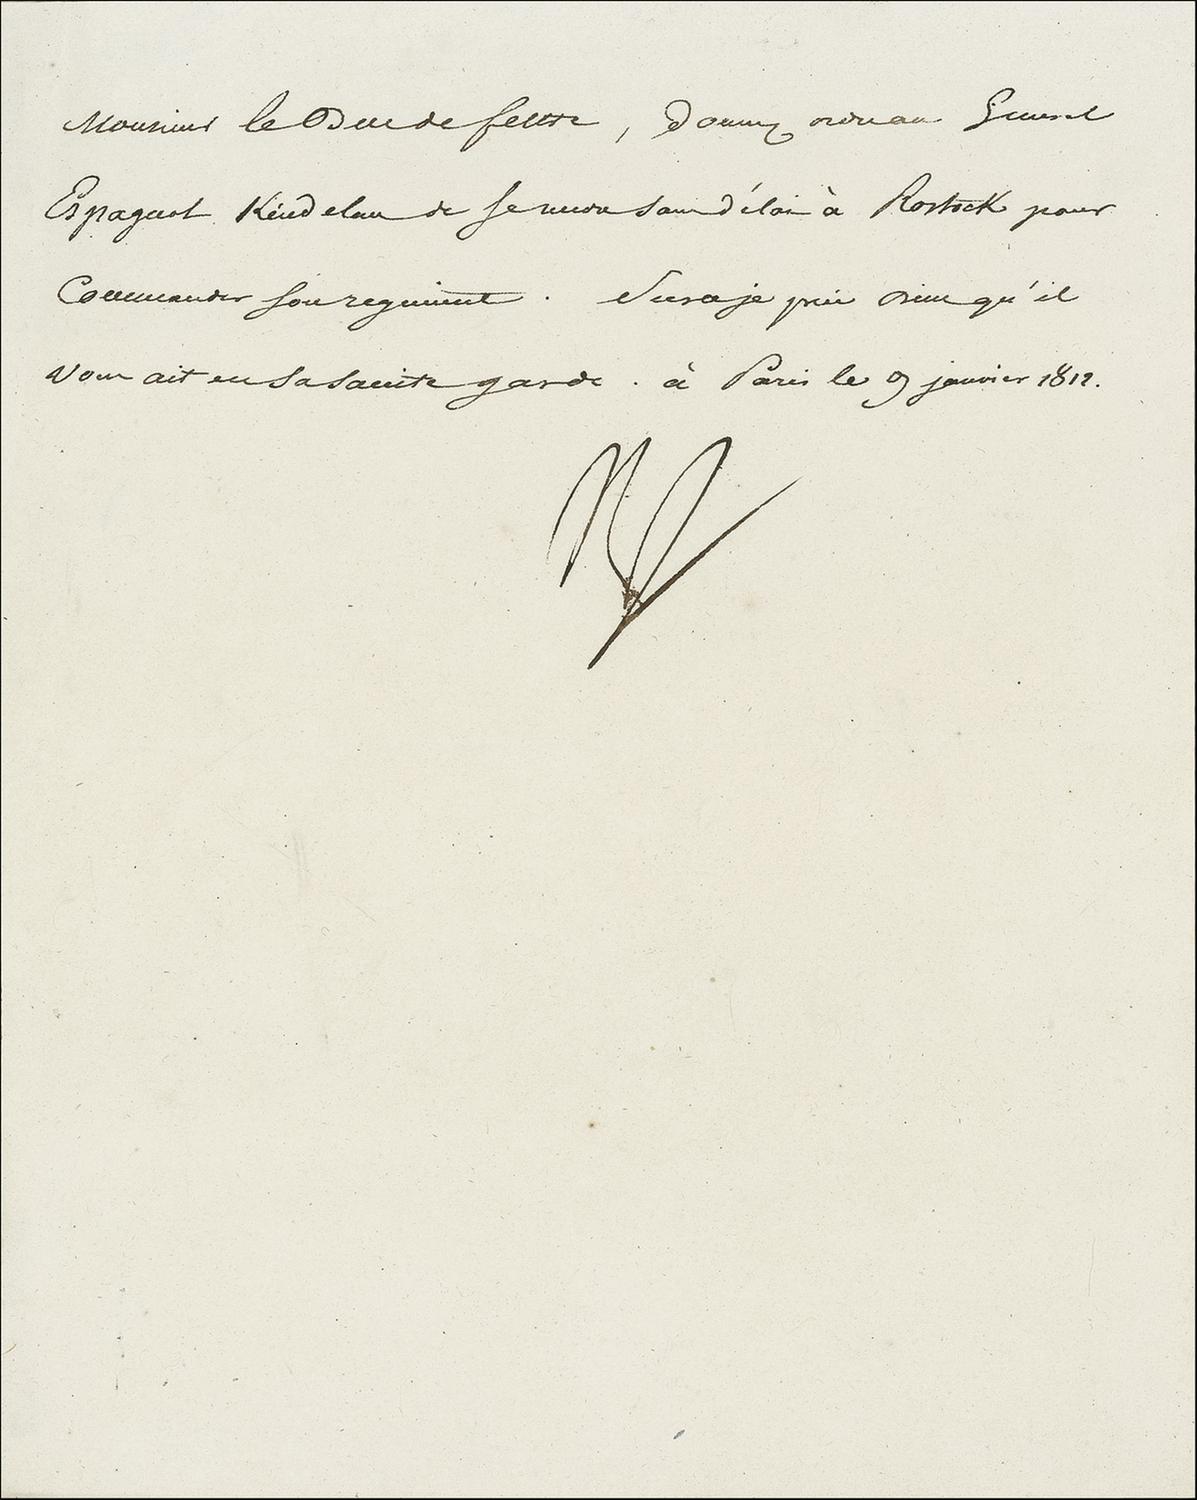 Monsieur le Duc de feltre, Donnez ordre au General
Espagnol Kindelan de se rendre sans délai à Rostock pour
Commander son regiment. Sur ce je prie Dieu qu'il
vous ait en sa sainte garde. à Paris le 9 janvier 1812.
Np